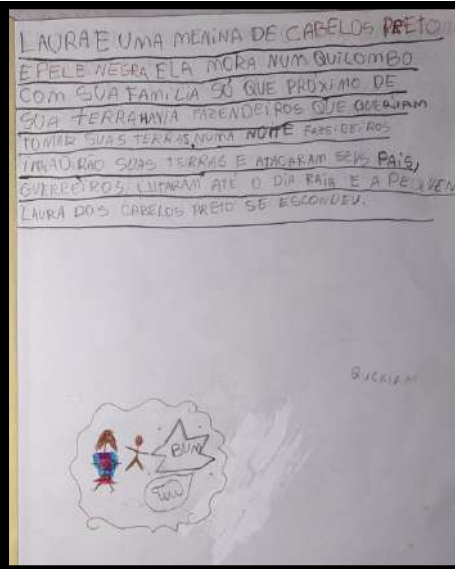 LAURA E UMA MENINA DE CABELOS PRETO
E PELE NEGRA ELA MORA NUM QUILOMBO
COM SUA FAMILIA SÓ QUE PROXIMO DE
SUA TERRA HAVIA FAZENDEIROS QUE QUERIAM
TOMAR SUAS TERRAS, NUMA NOITE
INVADIRÃO SUAS TERRAS E ATACARAM SEUS PAIS,
GUERREIROS, LUTARAM ATÉ O DIA RAIA E A PEQUEN
LAURA DOS CABELOS PRETO SE ESCONDEU.
BUM